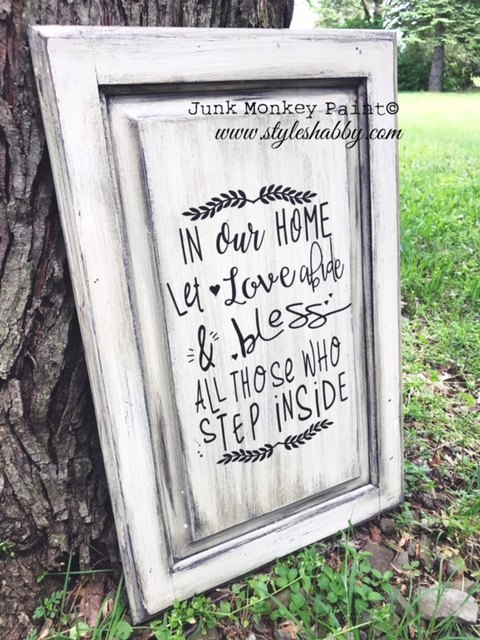 Junk Monkey Paint©
www.styleshabby.com
IN our HOME
Let Love abide
& bless
ALL THOSE WHO
STEP INSIDE